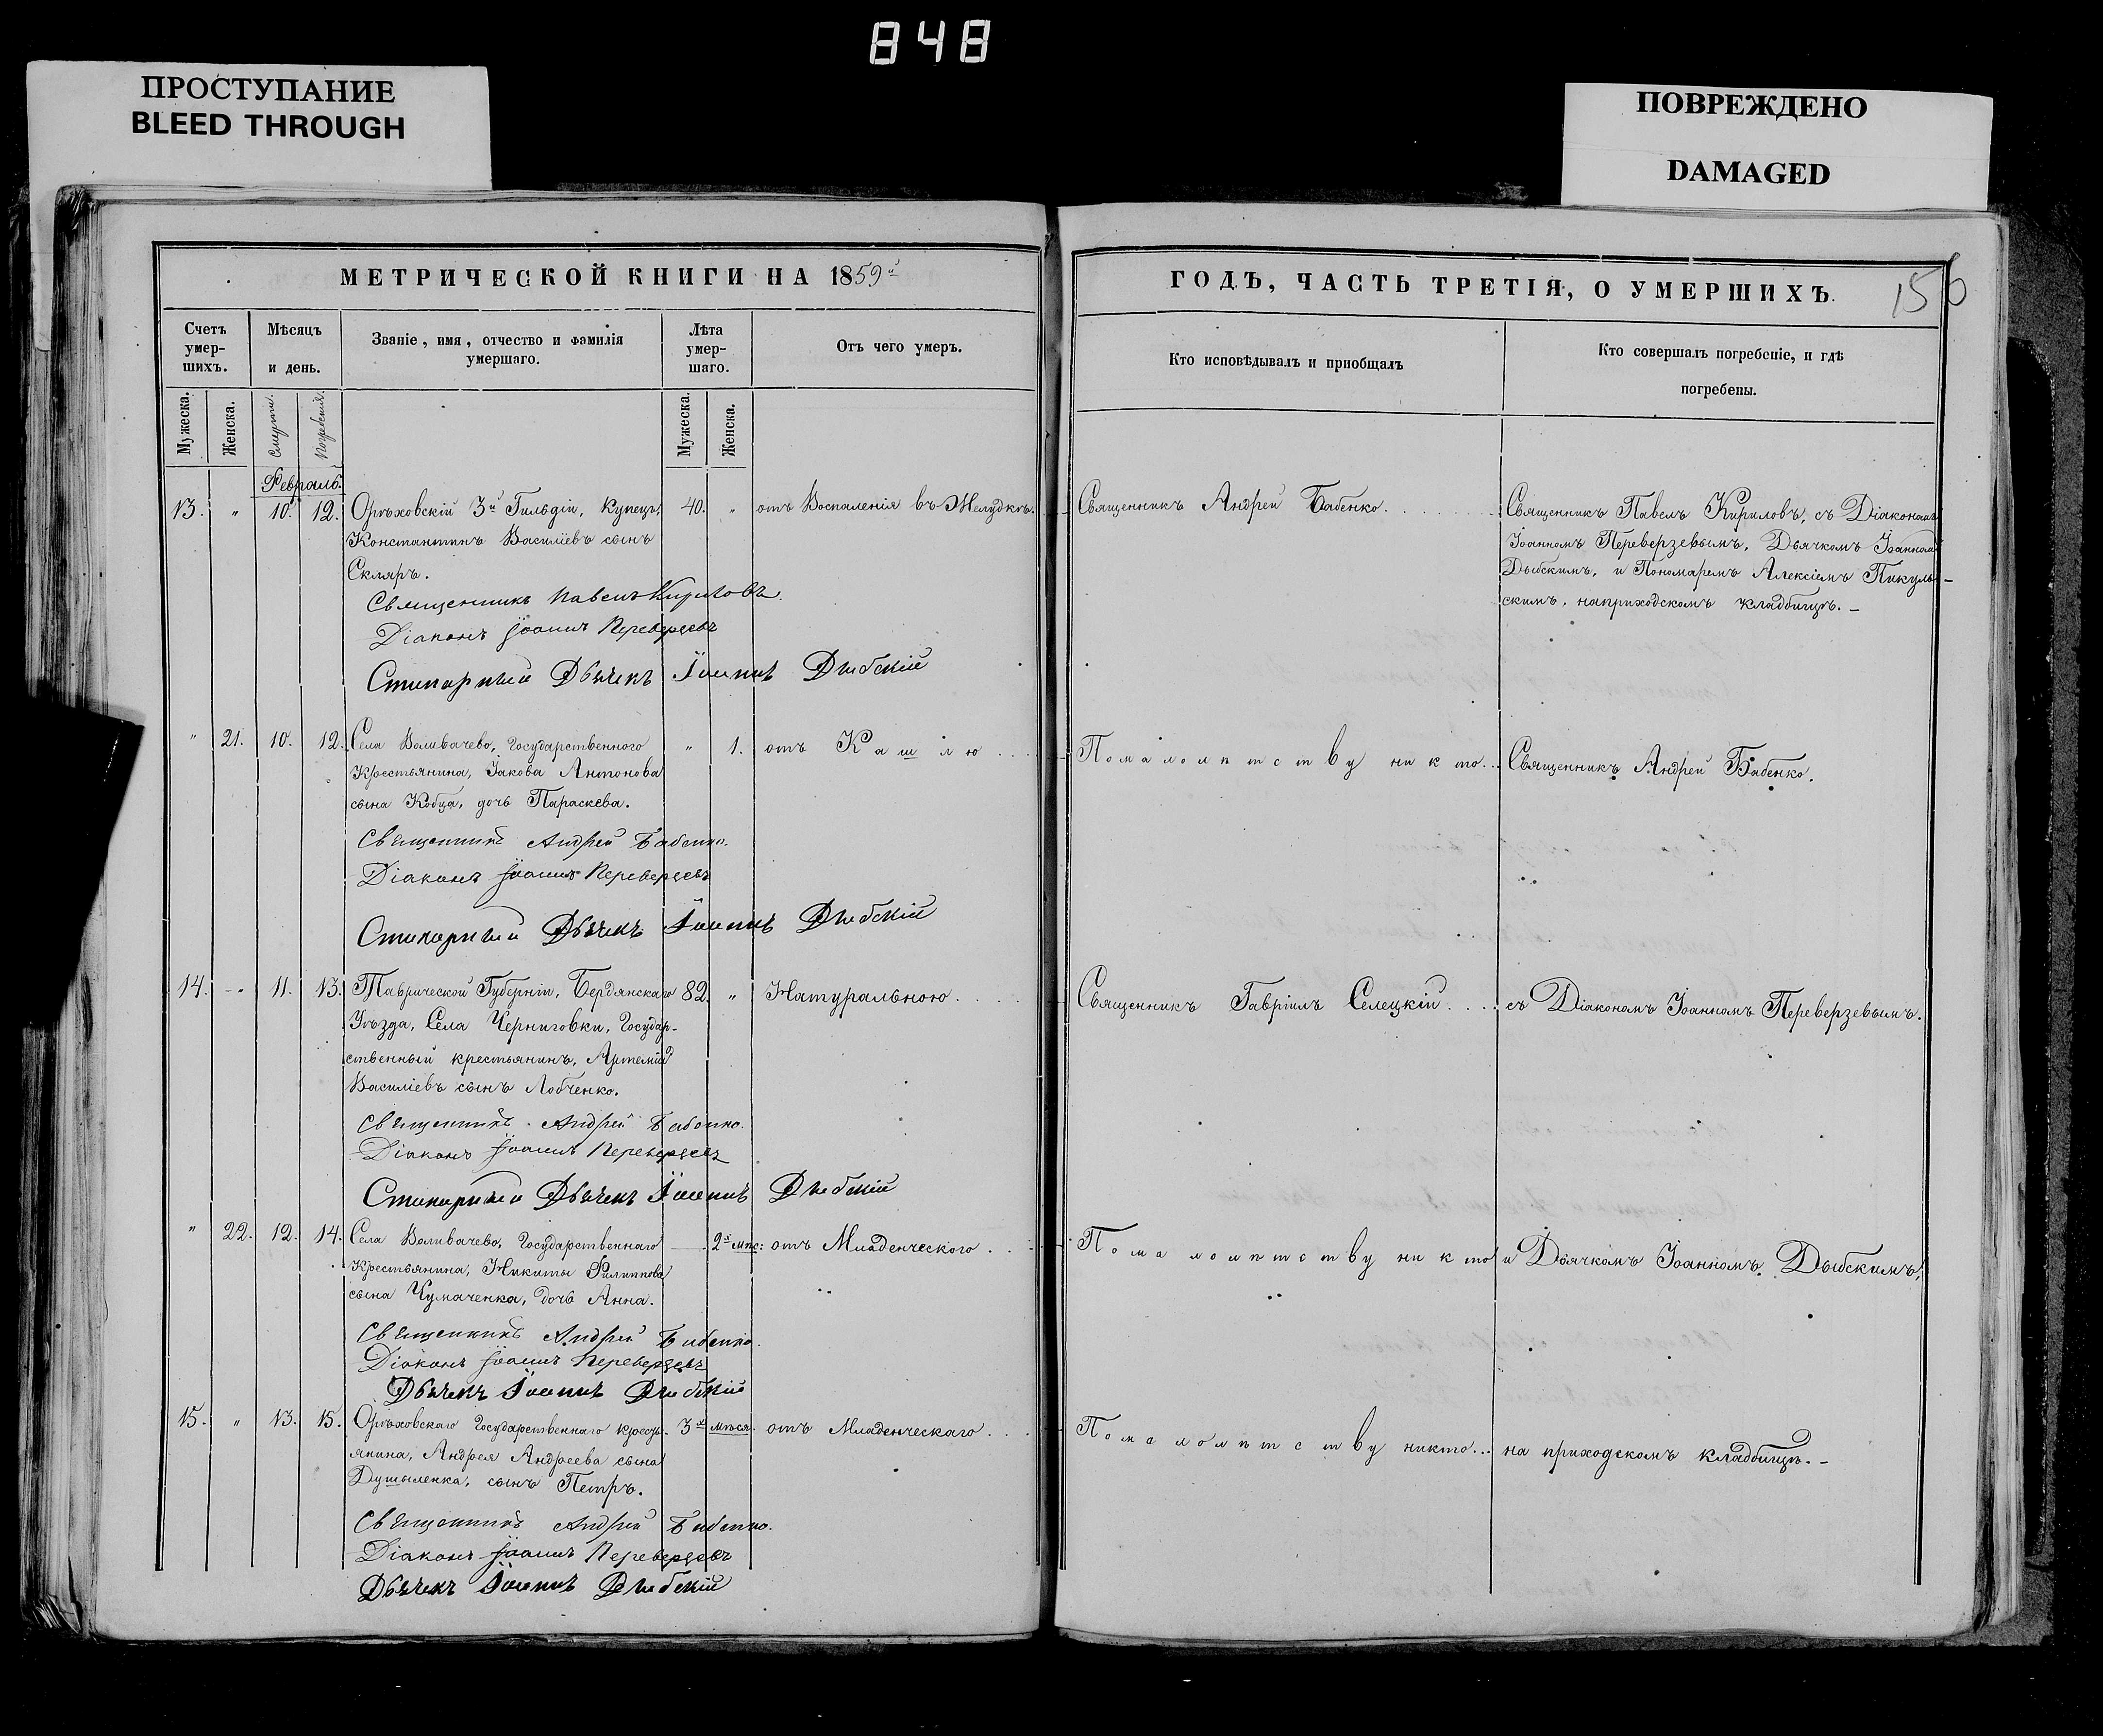 848
ПРОСТУПАНИЕ
BLEED THROUGH
ПОВРЕЖДЕНО
DAMAGED
МЕТРИЧЕСКОЙ КНИГИ НА 1859й
Счетъ умер- шихъ.
Мѣсяцъ и день.
Званіе, имя, отчество и фамилія умершаго.
Лѣта умер- шаго.
Отъ чего умеръ.
Мужеска.
Женска.
Смерти.
Погребенія.
Мужеска.
Женска.
Февраль.
13. " 10. 12. Орѣховскій 3й Гильдіи, Купецъ, 40. " отъ Воспаленія въ Желудкѣ.
Константинъ Василіевъ сынъ
Скляръ.
Священникъ Павелъ Кириловъ.
Діаконъ Іоаннъ Переверзевъ
Стихарный Дьячекъ Іоаннъ Дыбскій
" 21. 10. 12. Села Воливачево, Государственного " 1. отъ Кашлю....
Крестьянина, Іакова Антонова
сына Кобца, дочь Параскева.
Священникъ Андрей Бабенко.
Діаконъ Іоаннъ Переверзевъ
Стихарный Дьячекъ Іоаннъ Дыбскій
14. -- 11. 13. Таврической Губерніи, Бердянскаго 82. " Натуральною....
Уѣзда, Села Черниговки, Государ-
ственный крестьянинъ, Артемій
Василіевъ сынъ Лобченко.
Священникъ Андрей Бабенко.
Діаконъ Іоаннъ Переверзевъ
Стихарный Дьячекъ Іоаннъ Дыбскій
" 22. 12. 14. Села Воливачево, Государственнаго — 2х мѣс: отъ Младенческого...
Крестьянина, Никиты Филиппова
сына Чумаченка, дочь Анна.
Священникъ Андрей Бабенко.
Діаконъ Іоаннъ Переверзевъ
Дьячекъ Іоаннъ Дыбскій
15. " 13. 15. Орѣховскаго Государственнаго кресть- 3х мѣся. отъ Младенческаго...
янина, Андрея Андреева сына
Душыленка, сынъ Петръ.
Священникъ Андрей Бабенко.
Діаконъ Іоаннъ Переверзевъ
Дьячекъ Іоаннъ Дыбскій
ГОДЪ, ЧАСТЬ ТРЕТІЯ, О УМЕРШИХЪ.
156
Кто исповѣдывалъ и пріобщалъ
Кто совершалъ погребеніе, и гдѣ погребены.
Священникъ Андрей Бабенко........
Священникъ Павелъ Кириловъ, съ Діакономъ
Іоанномъ Переверзевымъ, Дьячкомъ Іоанномъ
Дыбскимъ, и Пономаремъ Алексіемъ Пикуль-
скимъ, наприходскомъ кладбищѣ. —
Помалолѣтству никто...
Священникъ Андрей Бабенко.
Священникъ Гавріилъ Селецкій....
съ Діакономъ Іоанномъ Переверзевымъ.
Помалолѣтству никто
и Дьячкомъ Іоанномъ Дыбскимъ,
Помалолѣтству никто...
на приходскомъ кладбищѣ. —